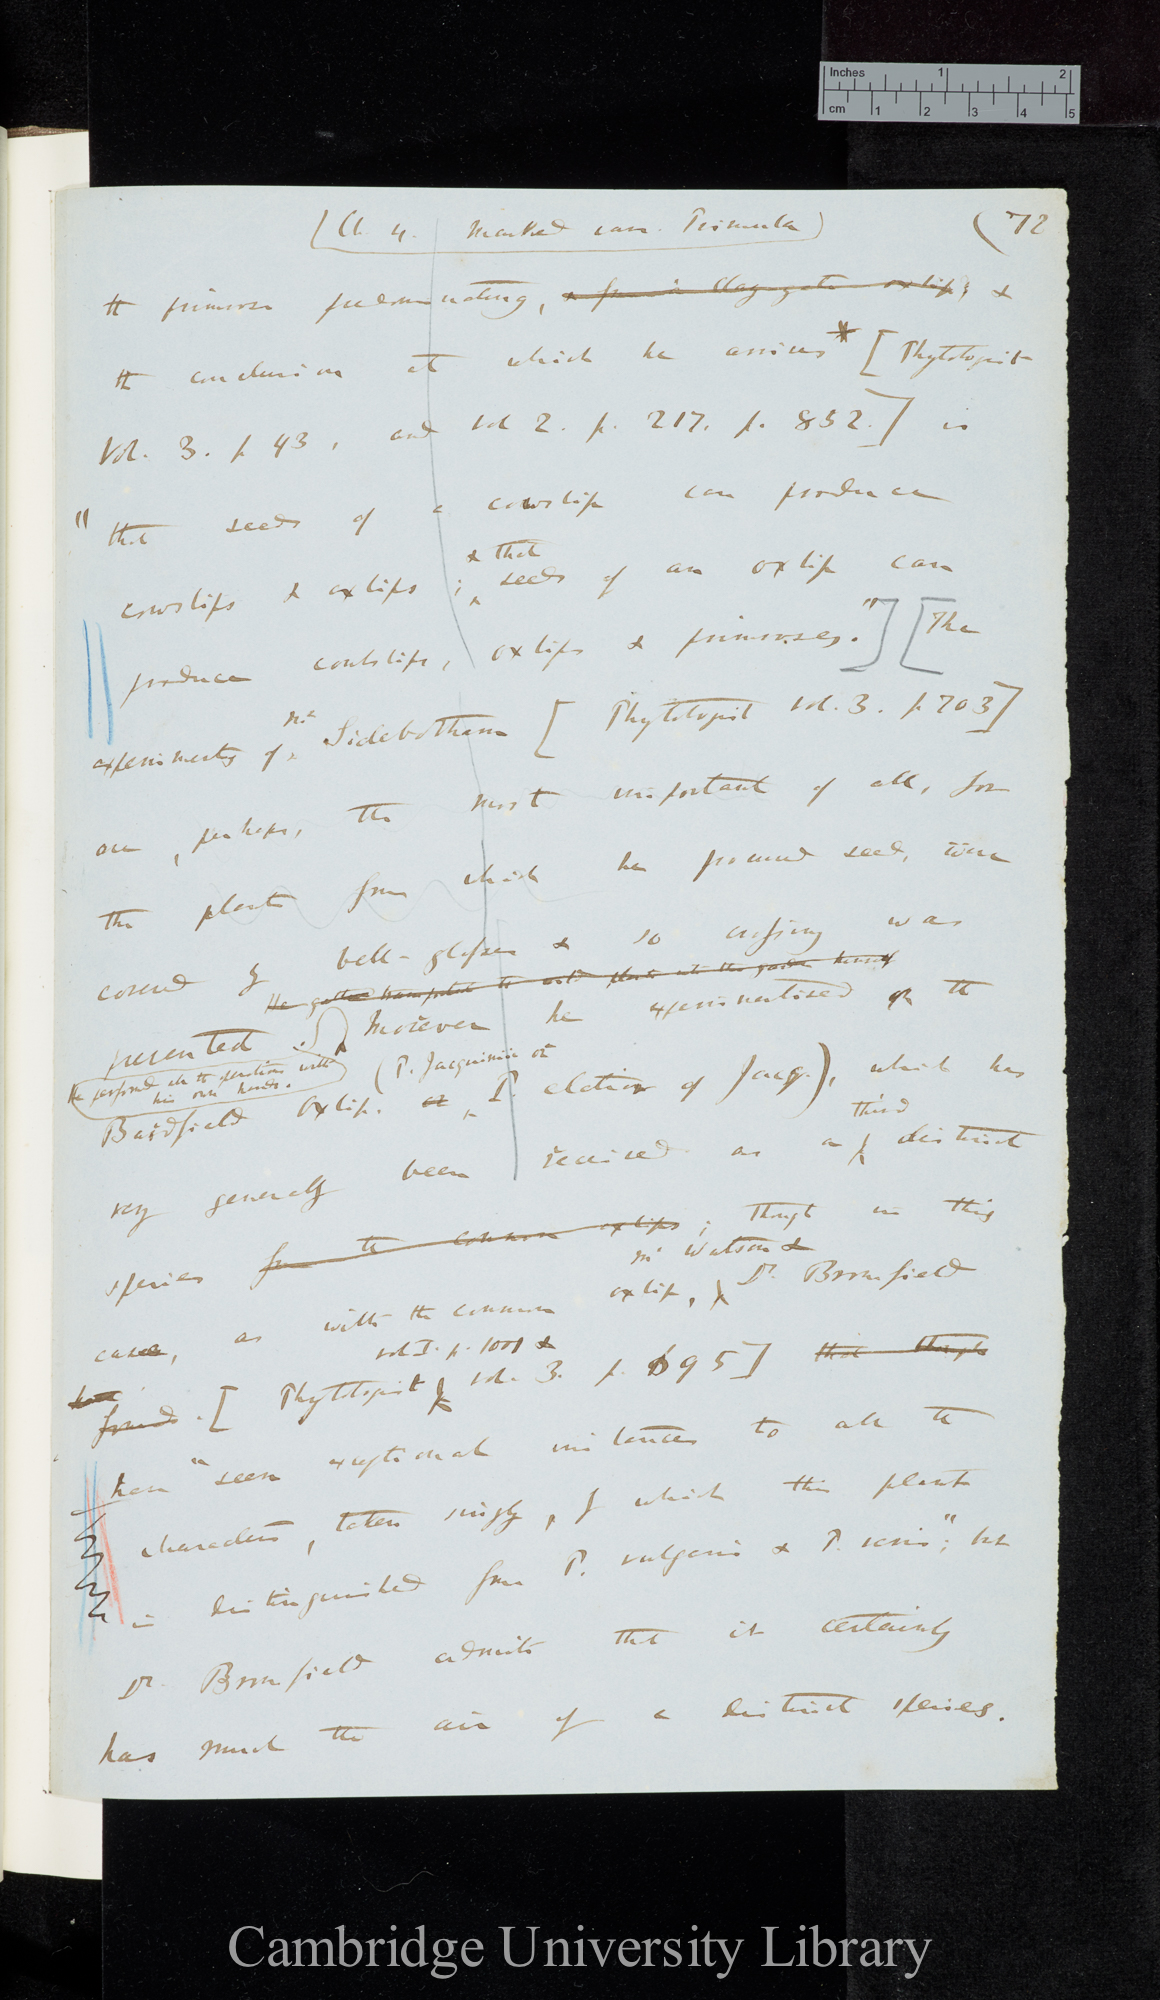 Inches 1 2
cm 1 2 3 4 5
(Ch. 4. Marked var. Primula)
(72
the primrose predominating, &
the conclusion at which he arrives* [Phytologist
Vol. 3. p 43, and vol 2. p. 217. p. 852.] is
"that seeds of a cowslip can produce
& that
cowslips & oxlips; seeds of an oxlip can
produce cowslips, oxlips & primroses."] [The
Mr
experiments of Sidebotham [Phytologist vol. 3. p 703]
are, perhaps, the most important of all, for
the plants from which he procured seed, were
covered by bell-glasses & so crossing was
He gathered transplanted the wild plants into the garden himself
prevented. Moreover he experimentised on the
He performed all the operations with
his own hands.
(P. Jacquinii or
Bardfield Oxlip. or P. elatior of Jacq.), which has
third
very generally been received as a distinct
species from the common oxlips; though in this
Mr Watson &
case, as with the common oxlip, Dr. Bromfield
vol I. p. 1001 &
have
found. [Phytologist vol. 3. p. 695] that though
have "seen exceptional instances to all the
characters, taken singly, by which this plant
is distinguished from P. vulgaris & P. veris"; but
Dr. Bromfield admits that it certainly
has much the air of a distinct species.
Cambridge University Library